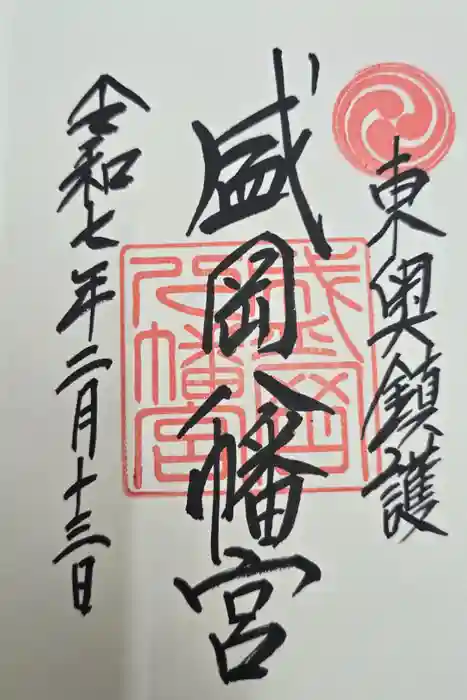 東奥鎮護
盛岡八幡宮
盛岡八幡宮
令和七年二月十三日